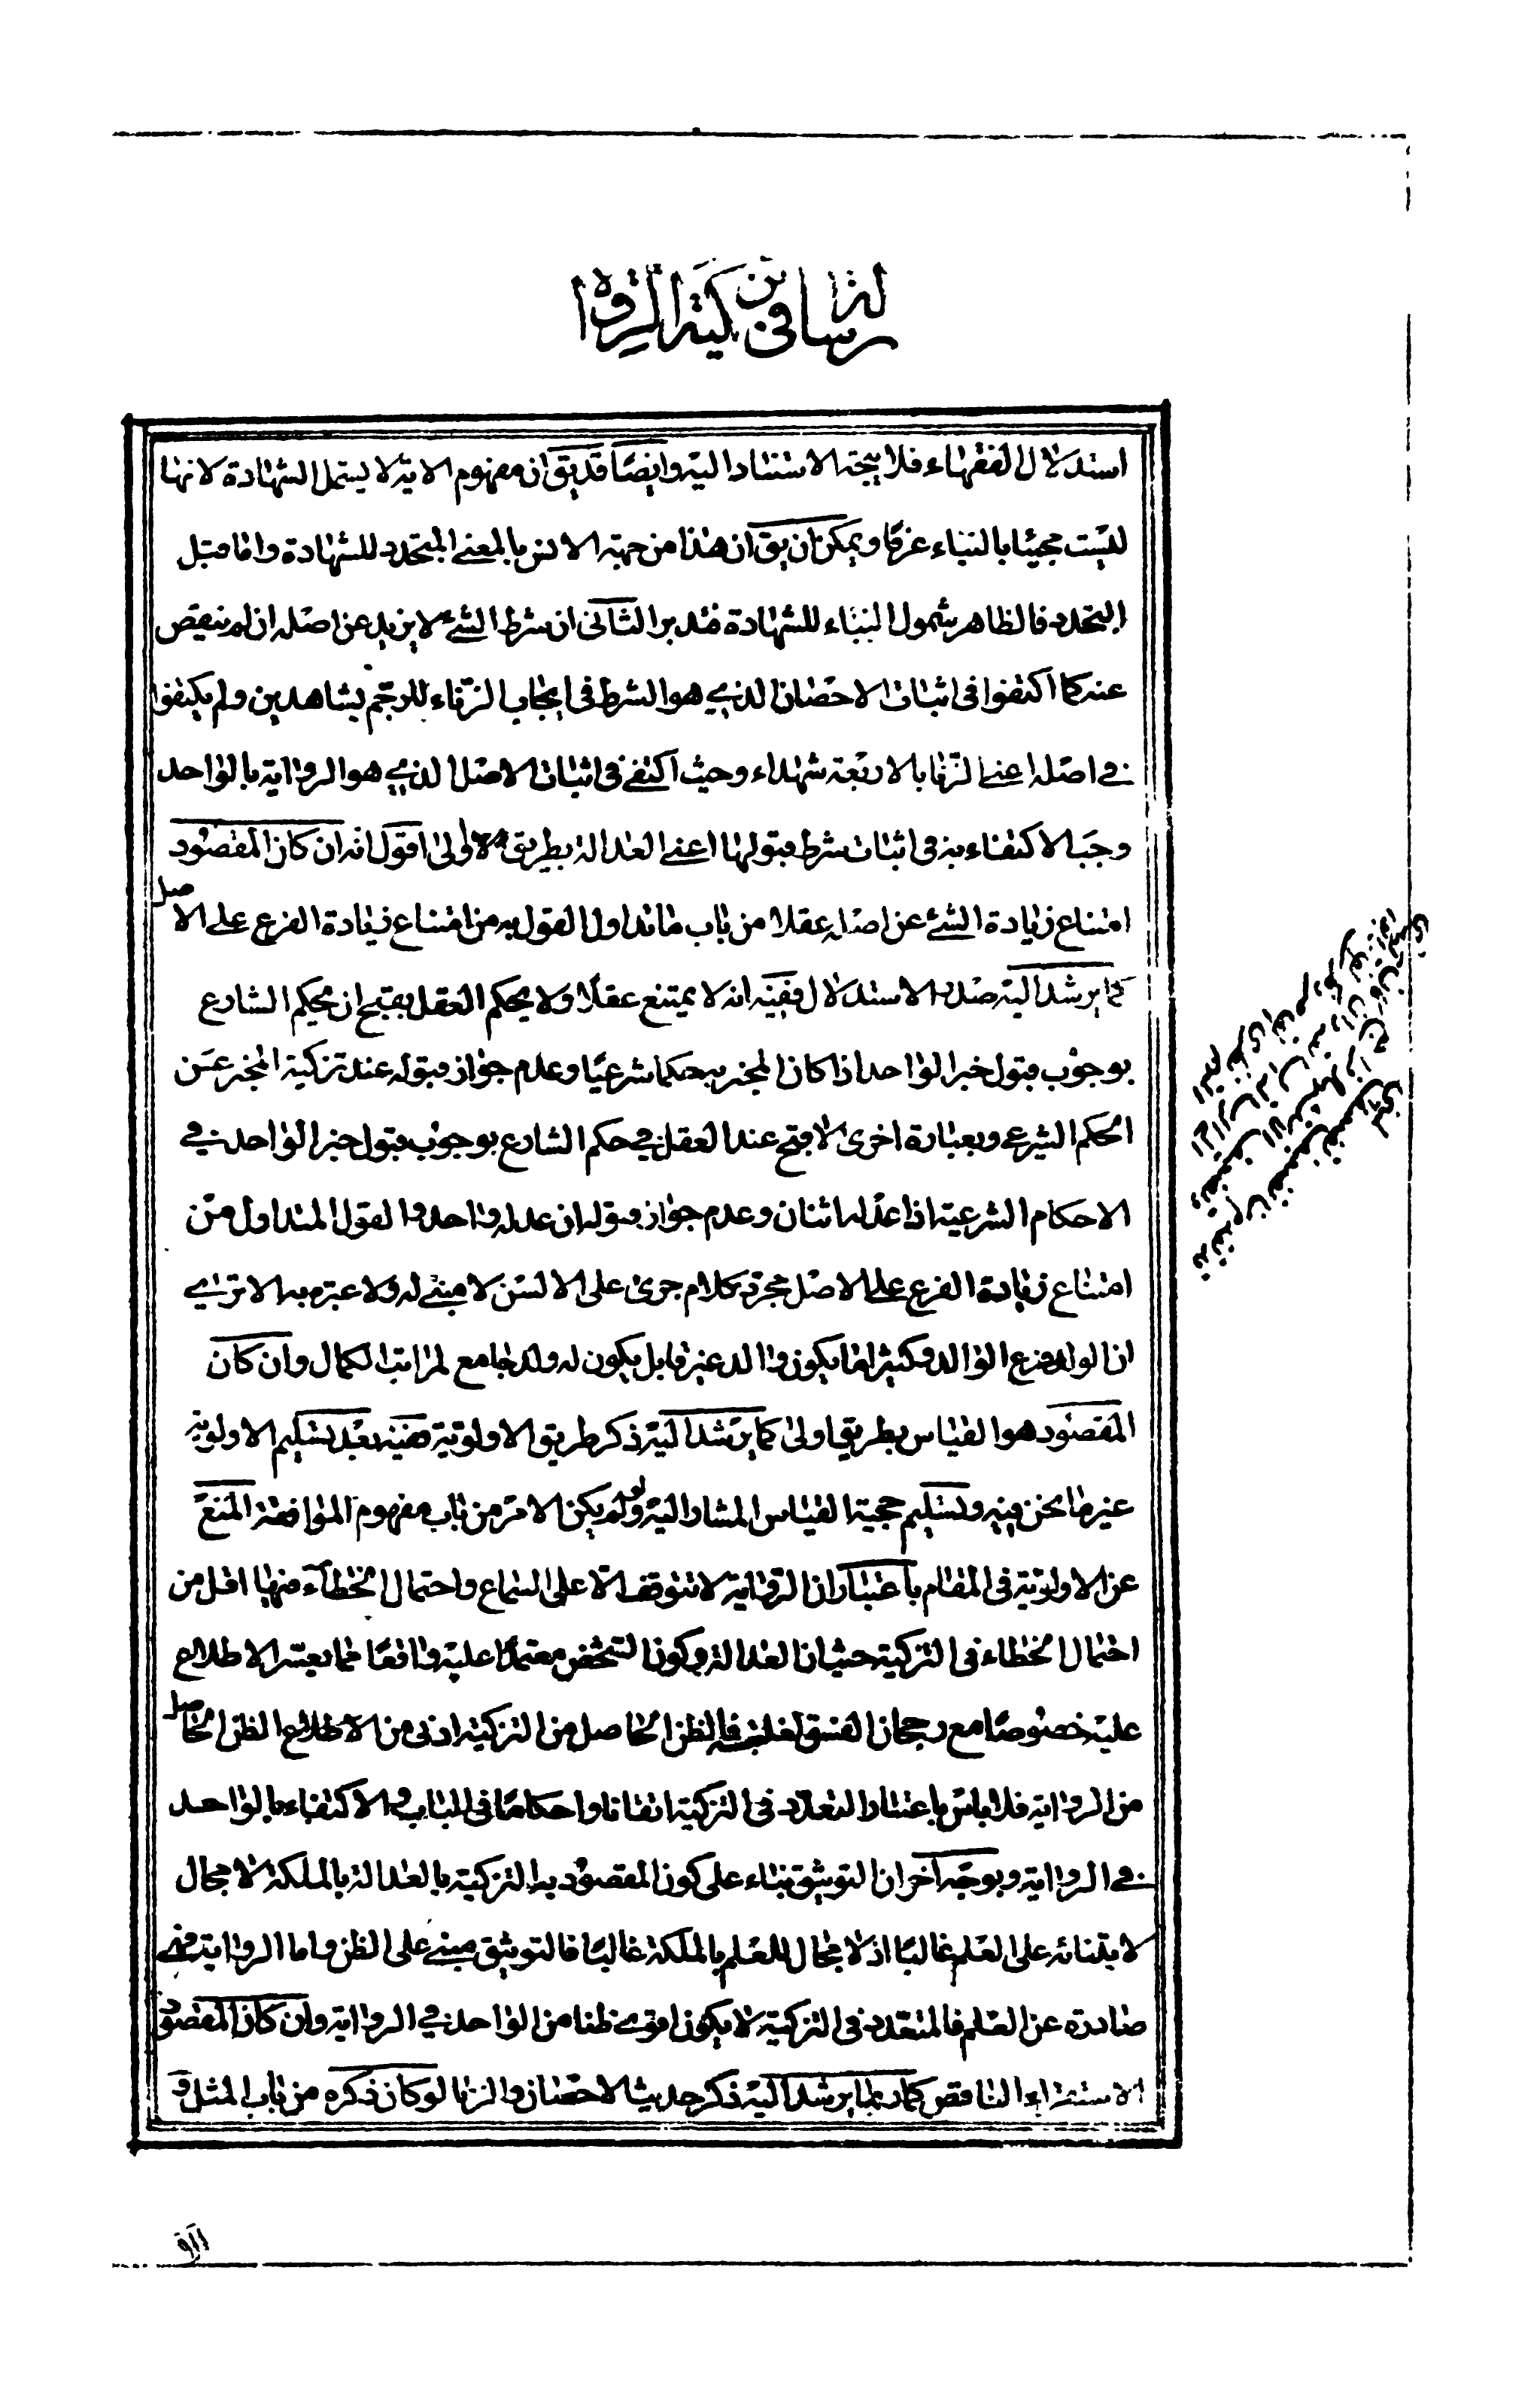 رسالة في تزكية الرواة
استدلال الفقهاء فلا يتجه الاستناد اليه وايضا قد يق ان مفهوم الاية لا يشمل الشهادة لانها
ليست مجيئا بالنباء عرفا ويمكن ان يق ان هذا من جهة الانس بالمعنى المتجدد للشهادة واما قبل
التجدد فالظاهر شمول النباء للشهادة فتدبر الثاني ان شرط الشيء لا يزيد عن اصله ان لم ينقص
عنه كما اكتفوا في اثبات الاحصان الذي هو الشرط في ايجاب الزناء للرجم بشاهدين ولم يكتفوا
في اصله اعني الزنا بالاربعة شهداء وحيث اكتفى في اثبات الاصل الذي هو الرواية بالواحد
وجب الاكتفاء به في اثبات شرط قبولها اعني العدالة بطريق الاولى اقول انه ان كان المقصود
امتناع زيادة الشيء عن اصله عقلا من باب ما تداول القول به من امتناع زيادة الفرع على الاصل
كما يرشد اليه صدر الاستدلال ففيه انه لا يمتنع عقلا ولا يحكم العقل بقبح ان يحكم الشارع
بوجوب قبول خبر الواحد اذا كان المخبر به حكما شرعيا وعدم جواز قبوله عند تزكية المخبر عن
الحكم الشرعي وبعبارة اخرى لا قبح عند العقل في حكم الشارع بوجوب قبول خبر الواحد في
الاحكام الشرعية اذا عدله اثنان وعدم جواز قبوله ان عدله واحد والقول المتداول من
امتناع زيادة الفرع على الاصل مجرد كلام جرى على الالسن لا مبنى له ولا عبرة به الا ترى
ان الولد فرع الوالد وكثيرا ما يكون والد غير قابل يكون له ولد جامع لمراتب الكمال وان كان
المقصود هو القياس بطريق اولى كما يرشد اليه ذكر طريق الاولوية ففيه بعد تسليم الاولوية
غير ما نحن فيه وتسليم حجية القياس المشار اليه ولو لم يكن الامر من باب مفهوم الموافقة المنع
عن الاولوية في المقام باعتبار ان الرواية لا تتوقف الا على السماع واحتمال الخطاء فيها اقل من
احتمال الخطاء في التزكية حيث ان العدالة وكون الشخص معتمدا عليه واقعا مما يعسر الاطلاع
عليه خصوصا مع رجحان الفسق لغلبته فالظن الحاصل من التزكية ادنى من الاطلاع الظن الحاصل
من الرواية فلا باس باعتبار التعدد في التزكية اتقانا واحكاما في الباب والاكتفاء بالواحد
في الرواية وبوجه آخر ان التوثيق بناء على كون المقصود به التزكية بالعدالة بالملكة لا مجال
لابتنائه على العلم غالبا اذ لا مجال للعلم بالملكة غالبا فالتوثيق مبني على الظن واما الرواية فهي
صادرة عن العلم فالمتعدد في التزكية لا يكون اقوى ظنا من الواحد في الرواية وان كان المقصود
الاستقراء الناقص كما ربما يرشد اليه ذكر حديث الاحصان والزنا لو كان ذكره من باب المثل و